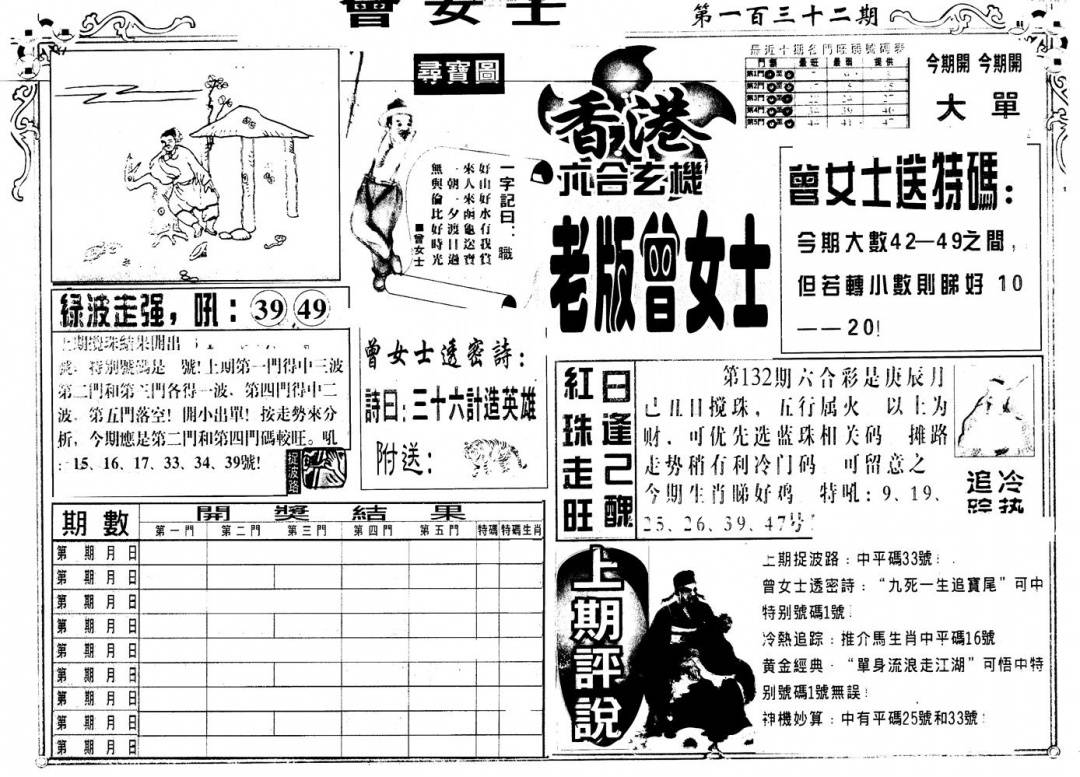 曾女士
第一百三十二期
尋寶圖
一字記曰：職
好山好水有我賞
來人來函龜送寶
一朝一夕渡日過
無與倫比好時光
■曾女士
香港
六合玄機
老版曾女士
最近十期各門旺弱號碼彩
門類 最旺 最弱 提供
第1門
第2門
第3門
第4門
第5門
今期開 今期開
大 單
曾女士送特碼：
今期大數42—49之間，
但若轉小數則睇好 10
——20!
綠波走强，吼：39 49
上期攪珠結果開出
特別號碼是 號!上期第一門得中三波
第二門和第三門各得一波、第四門得中二
波、第五門落空! 開小出單! 按走勢來分
析，今期應是第二門和第四門碼較旺。吼
：15、16、17、33、34、39號!
捉波路
曾女士透密詩：
詩曰：三十六計造英雄
附送：
紅珠走旺
日逢己醜
第132期六合彩是庚辰月
己丑日搅珠，五行属火 以上为
财，可优先选蓝珠相关码 摊路
走势稍有利冷门码 可留意之
今期生肖睇好鸡 特吼：9、19、
25、26、39、47号!
冷热
追踪
期數 開獎結果
第一門 第二門 第三門 第四門 第五門 特碼 特碼生肖
第 期 月 日
第 期 月 日
第 期 月 日
第 期 月 日
第 期 月 日
第 期 月 日
第 期 月 日
第 期 月 日
第 期 月 日
上期評說
上期捉波路：中平碼33號!
曾女士透密詩：“九死一生追寶尾”可中
特別號碼1號!
冷熱追踪：推介馬生肖中平碼16號
黃金經典·“單身流浪走江湖”可悟中特
別號碼1號無誤!
神機妙算：中有平碼25號和33號!